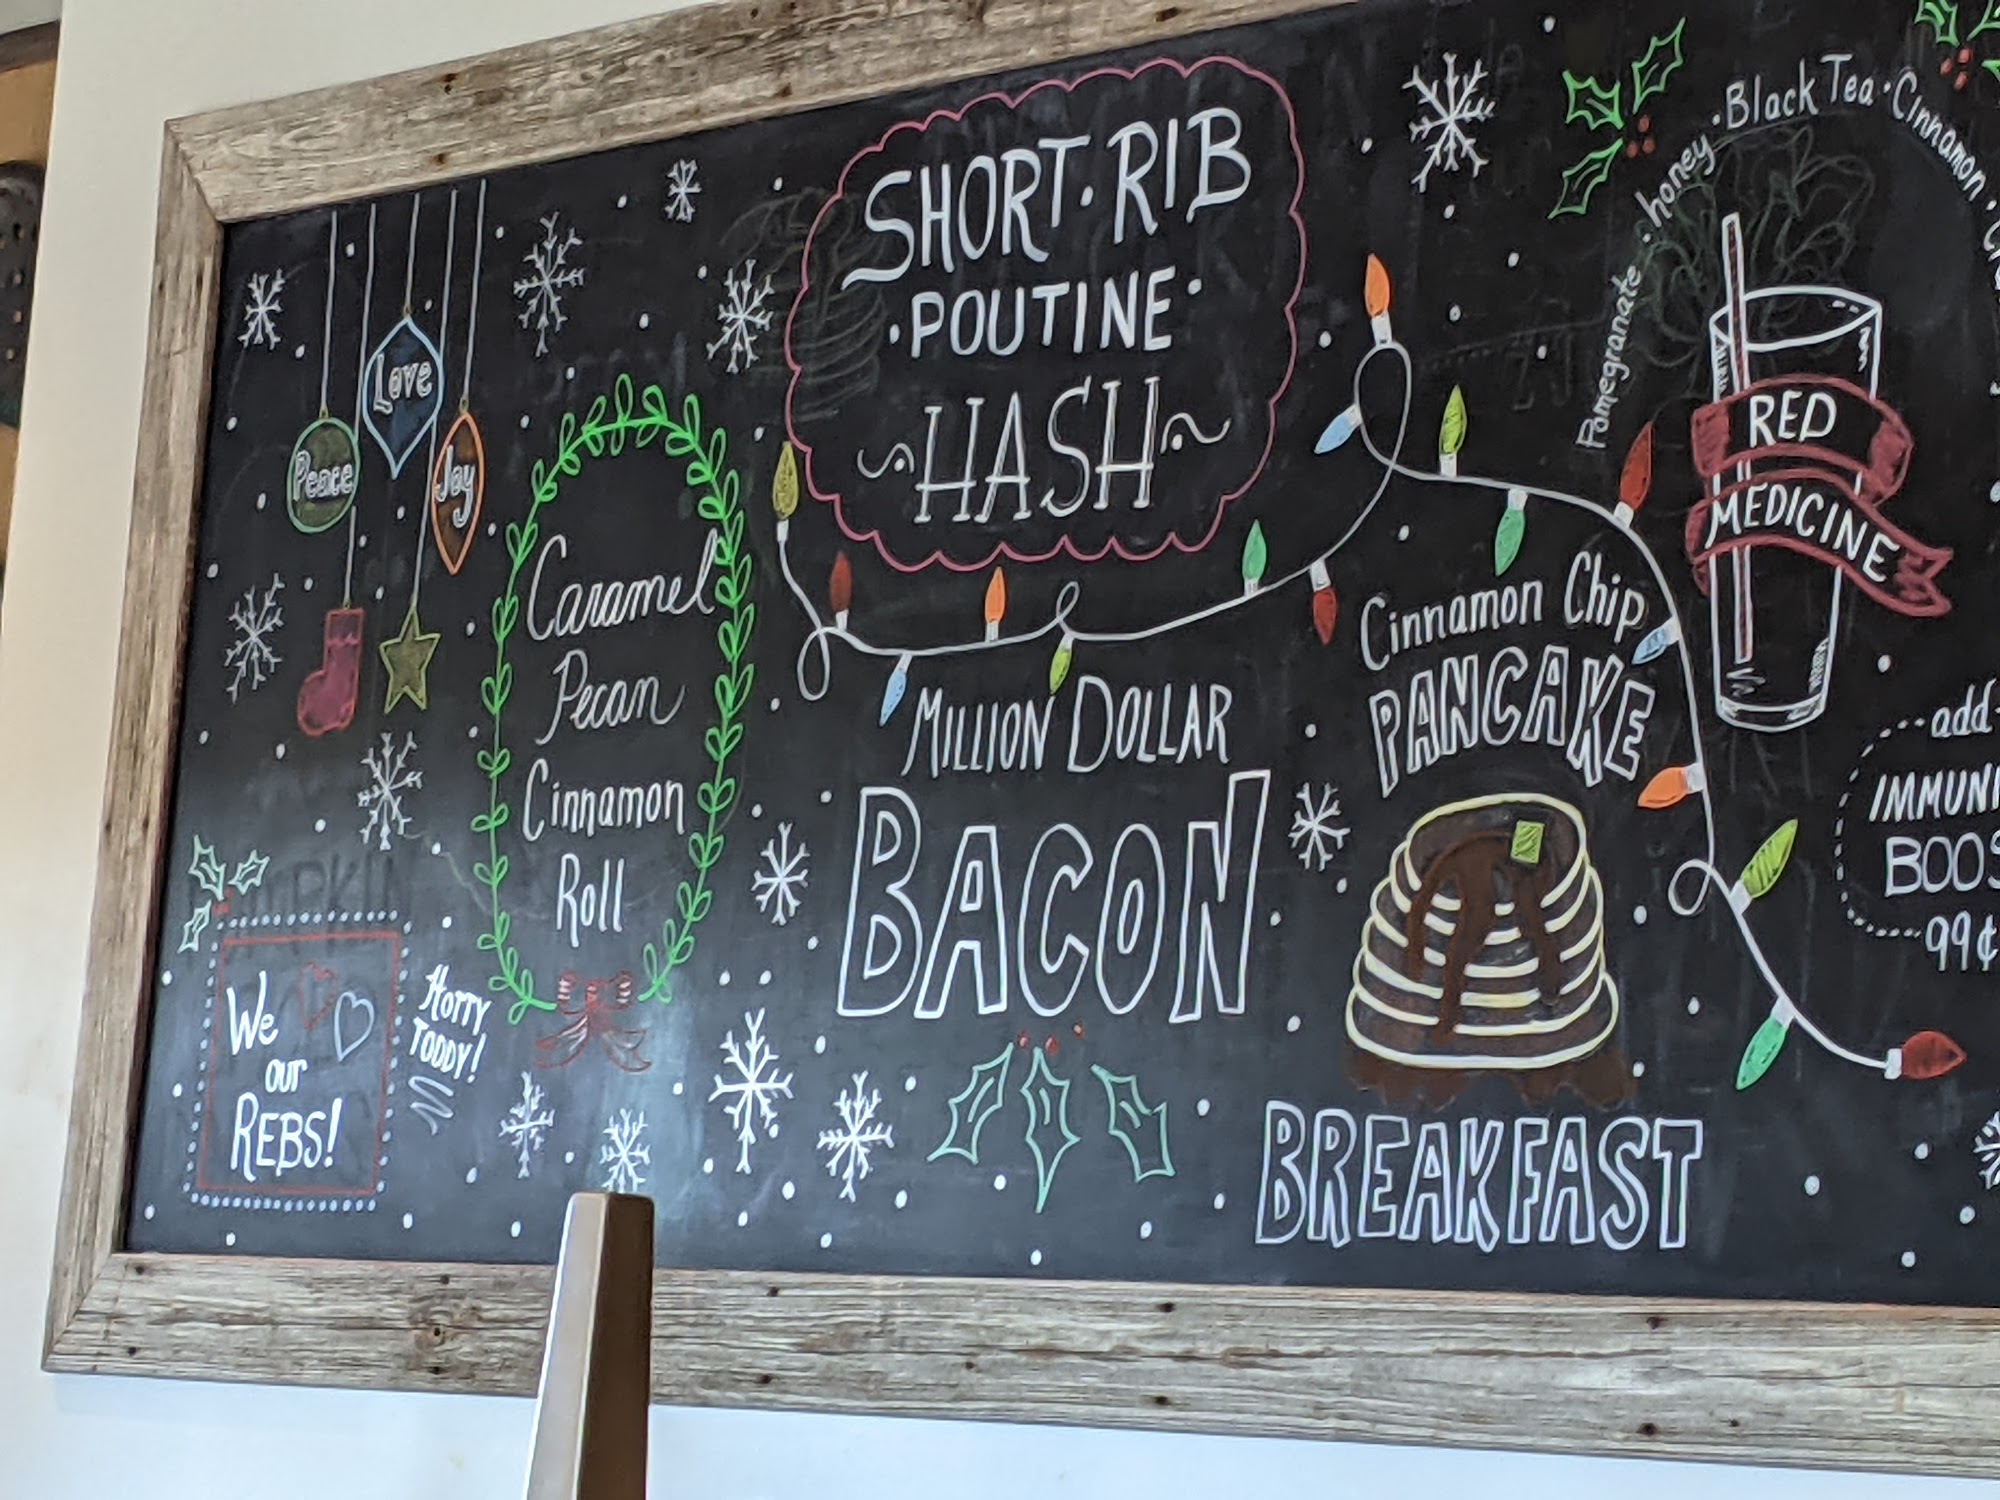 Love
Peace
Joy
Caramel
Pecan
Cinnamon
Roll
We
our
REBS!
HOTTY
TODDY!
SHORT·RIB
·POUTINE·
~·HASH·~
MILLION DOLLAR
BACON
Cinnamon Chip
PANCAKE
BREAKFAST
Pomegranate·honey·Black Tea·Cinnamon·
RED
MEDICINE
add
IMMUNI
BOOS
99¢